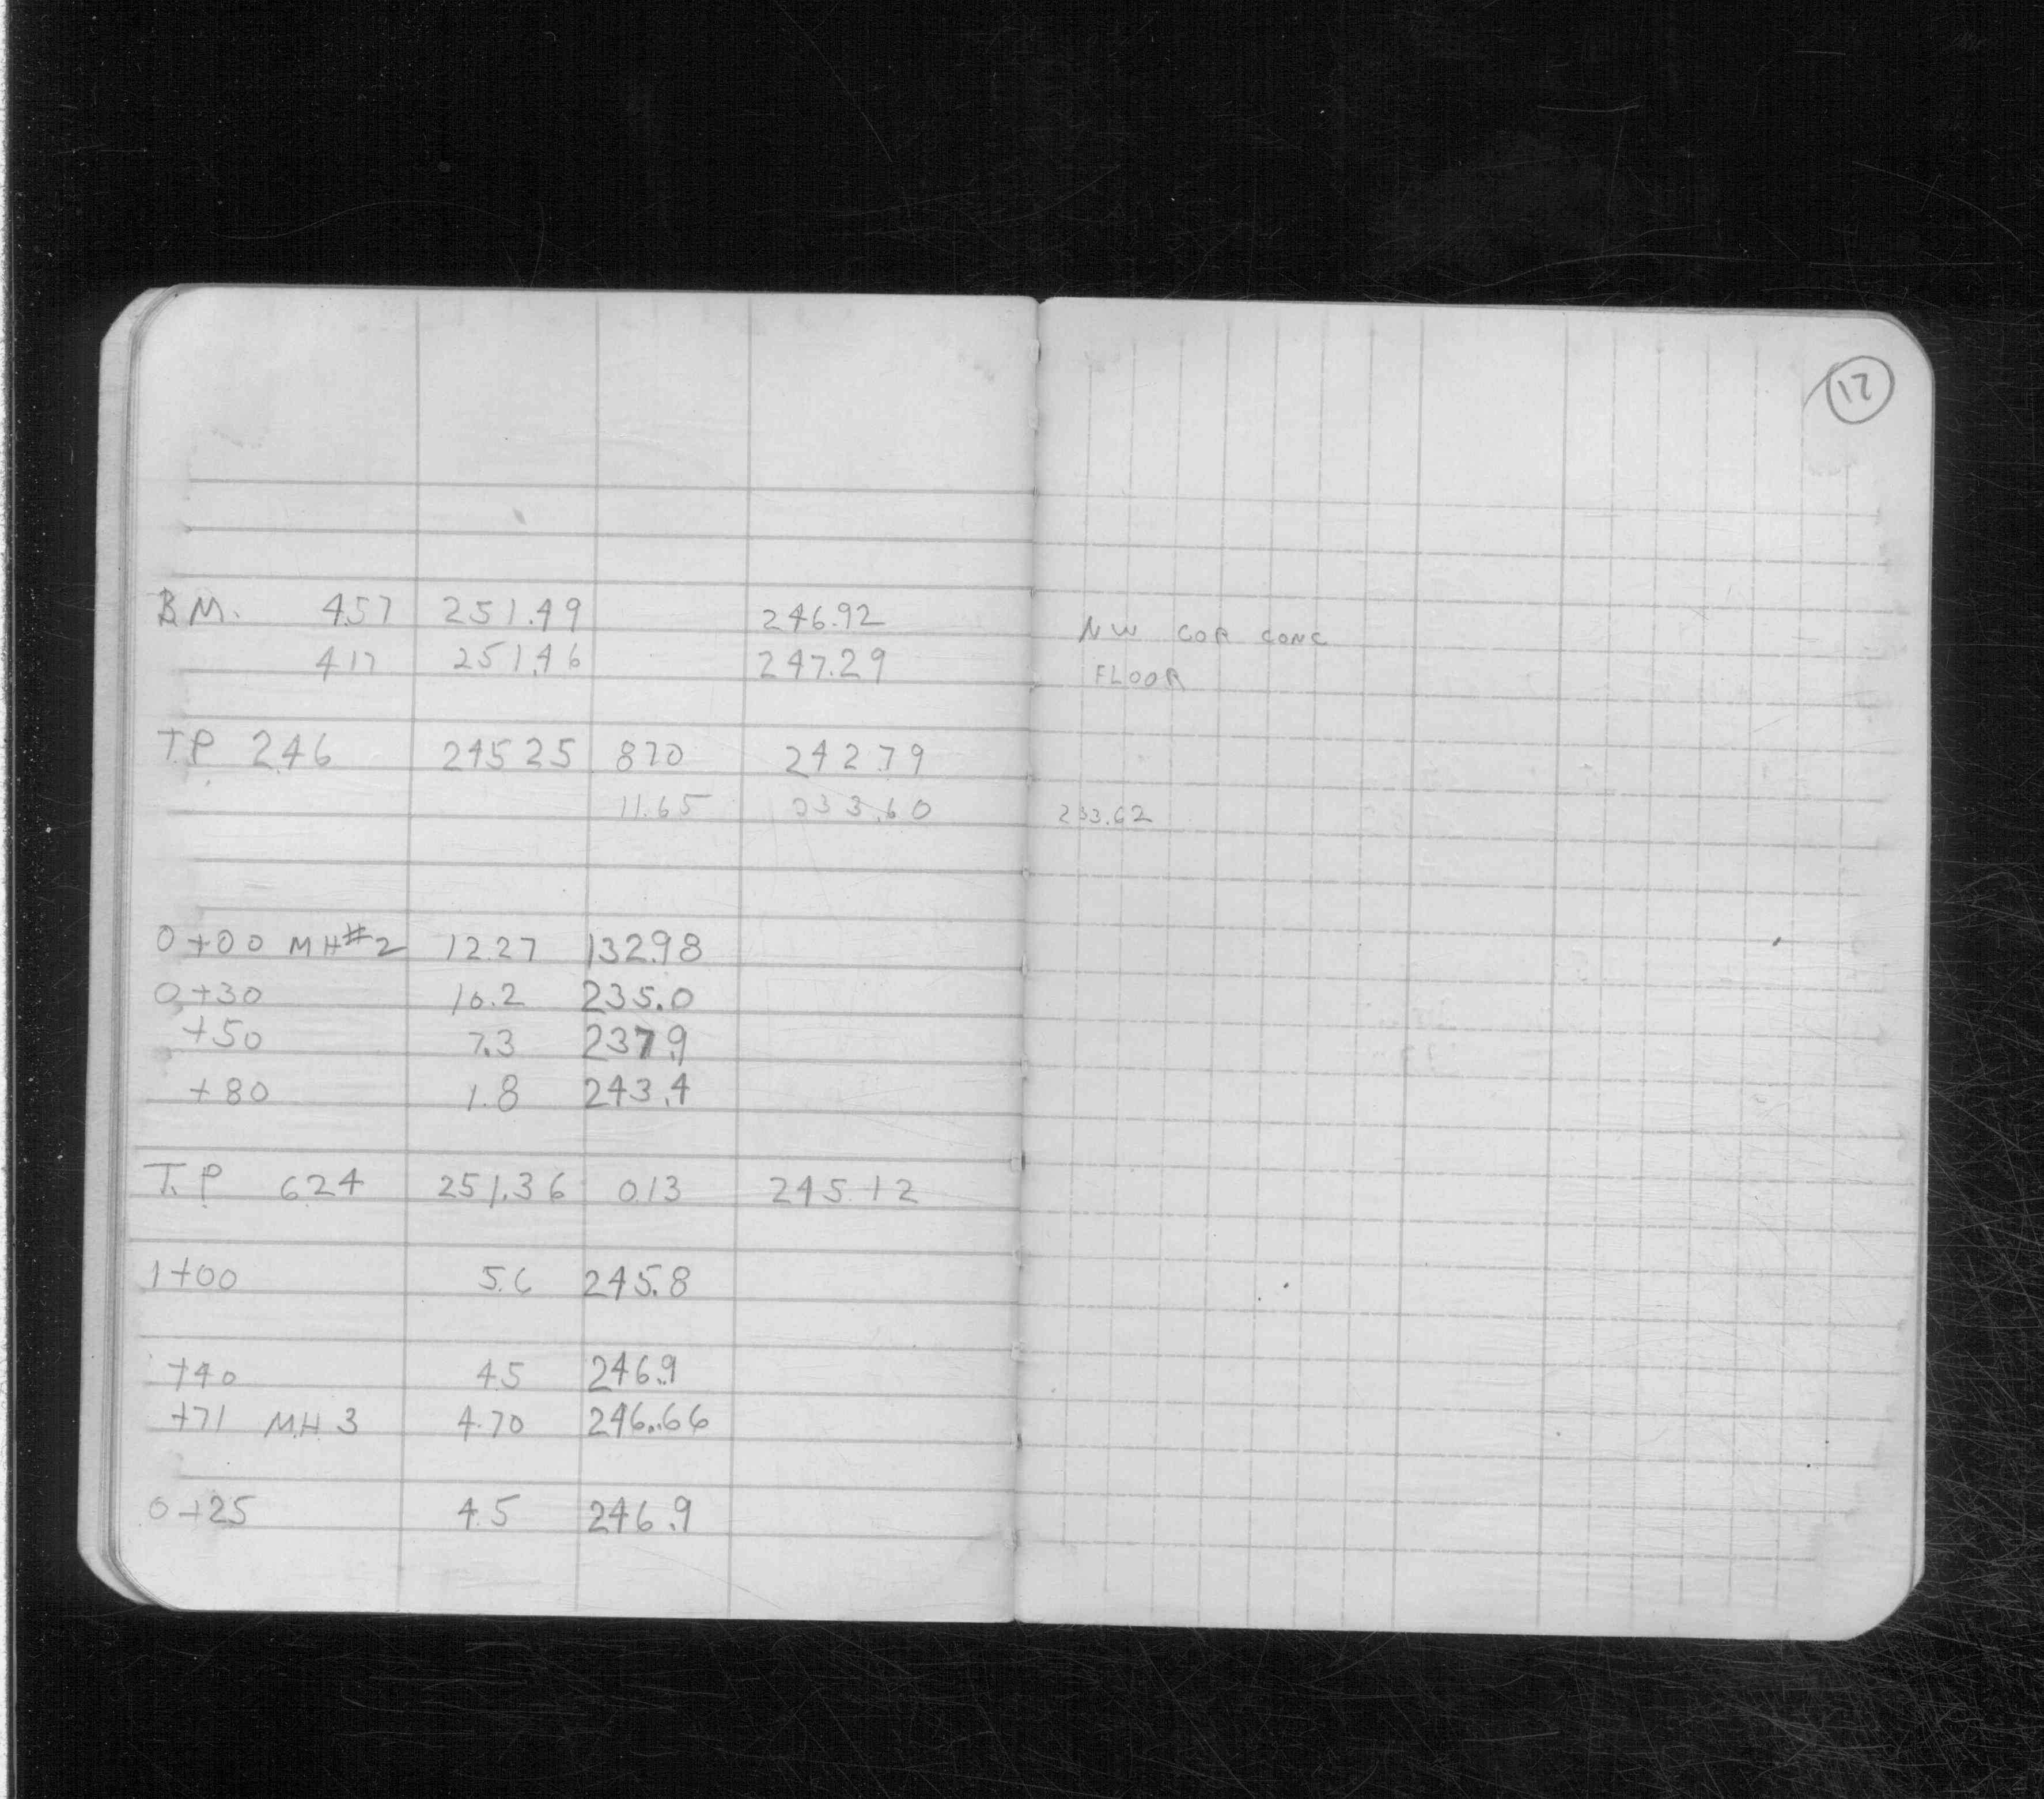 17
B.M. 4.57 251.49 246.92 NW COR CONC
4.17 251.46 247.29 FLOOR
T.P 2.46 245 25 8 70 242.79
11.65 033.60 233.62
0+00 MH#2 12.27 13298
0+30 10.2 235.0
+50 7.3 237.9
+80 1.8 243.4
T.P 6.24 251.36 0.13 245.12
1+00 5.6 245.8
+40 4.5 246.9
+71 M.H. 3 4.70 246.66
0+25 4.5 246.9